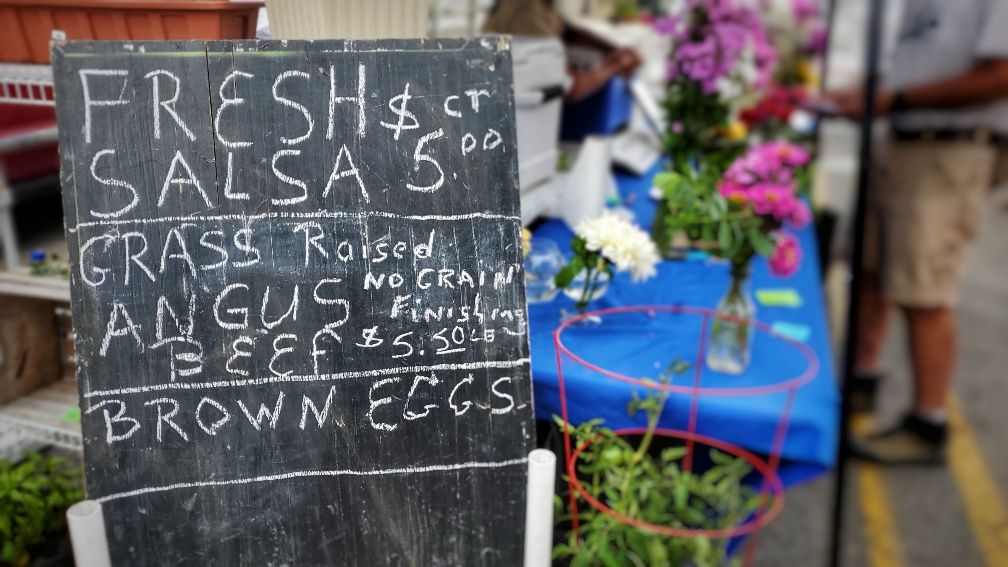 FRESH $ CT
SALSA 5.00
GRASS Raised
NO GRAIN
ANGUS Finishing
BEEF $5.50 LB
BROWN EGGS